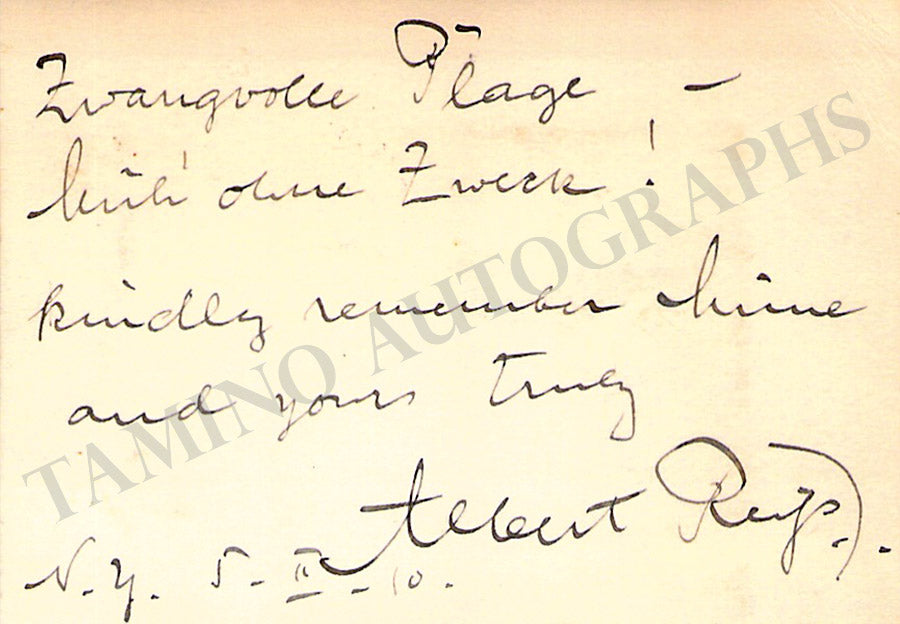 Zwangvolle Plage –
Müh' ohne Zweck!
kindly remember Mime
and yours truly
Albert Reiß.
N.Y. 5-II-10.
TAMINO AUTOGRAPHS